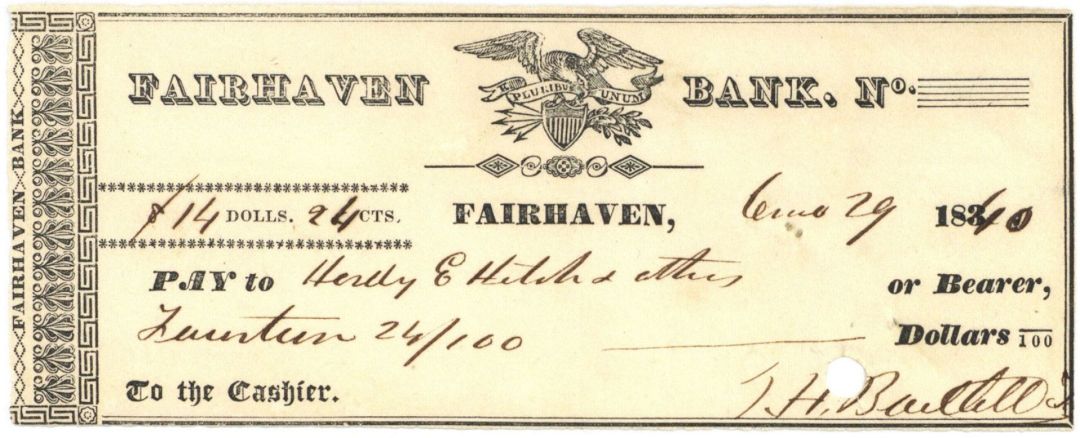 FAIRHAVEN BANK. No.
E PLURIBUS UNUM
$14 DOLLS. 24 CTS. FAIRHAVEN, 29 1840
PAY to Hardy E Hitch & others or Bearer,
Fourteen 24/100 Dollars 100
To the Cashier.
I. H. Bartlett
FAIRHAVEN BANK